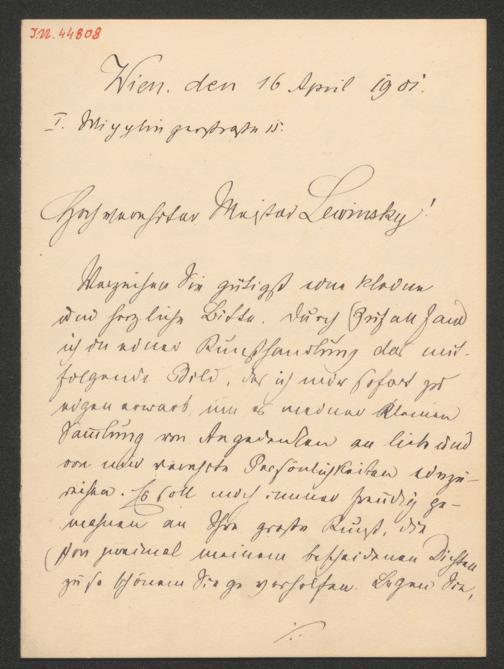 I.N. 44808
Wien. den 16 April 1901.
I. Wipplingerstraße 15.
Hochverehrter Meister Lewinsky!
Verzeihen Sie gütigst eine kleine
und herzliche Bitte. Durch Zufall fand
ich in einer Kunsthandlung das mit-
folgende Bild, das ich mir sofort zu
eigen erwarb, um es meiner kleinen
Sammlung von Angedenken an liebe und
von mir verehrte Persönlichkeiten einzu-
reihen. Es soll mich immer freudig ge-
mahnen an Ihre große Kunst, die
schon zweimal meinem bescheidenen Dichten
zu so schönem Siege verholfen. Legen Sie,
./.